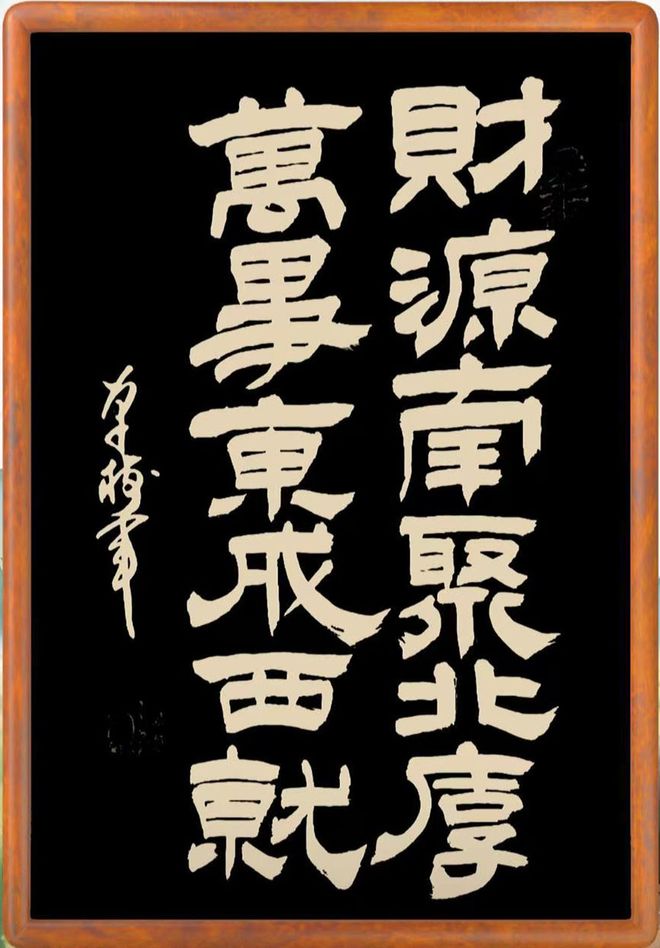 財源南聚北厚
萬事東成西就